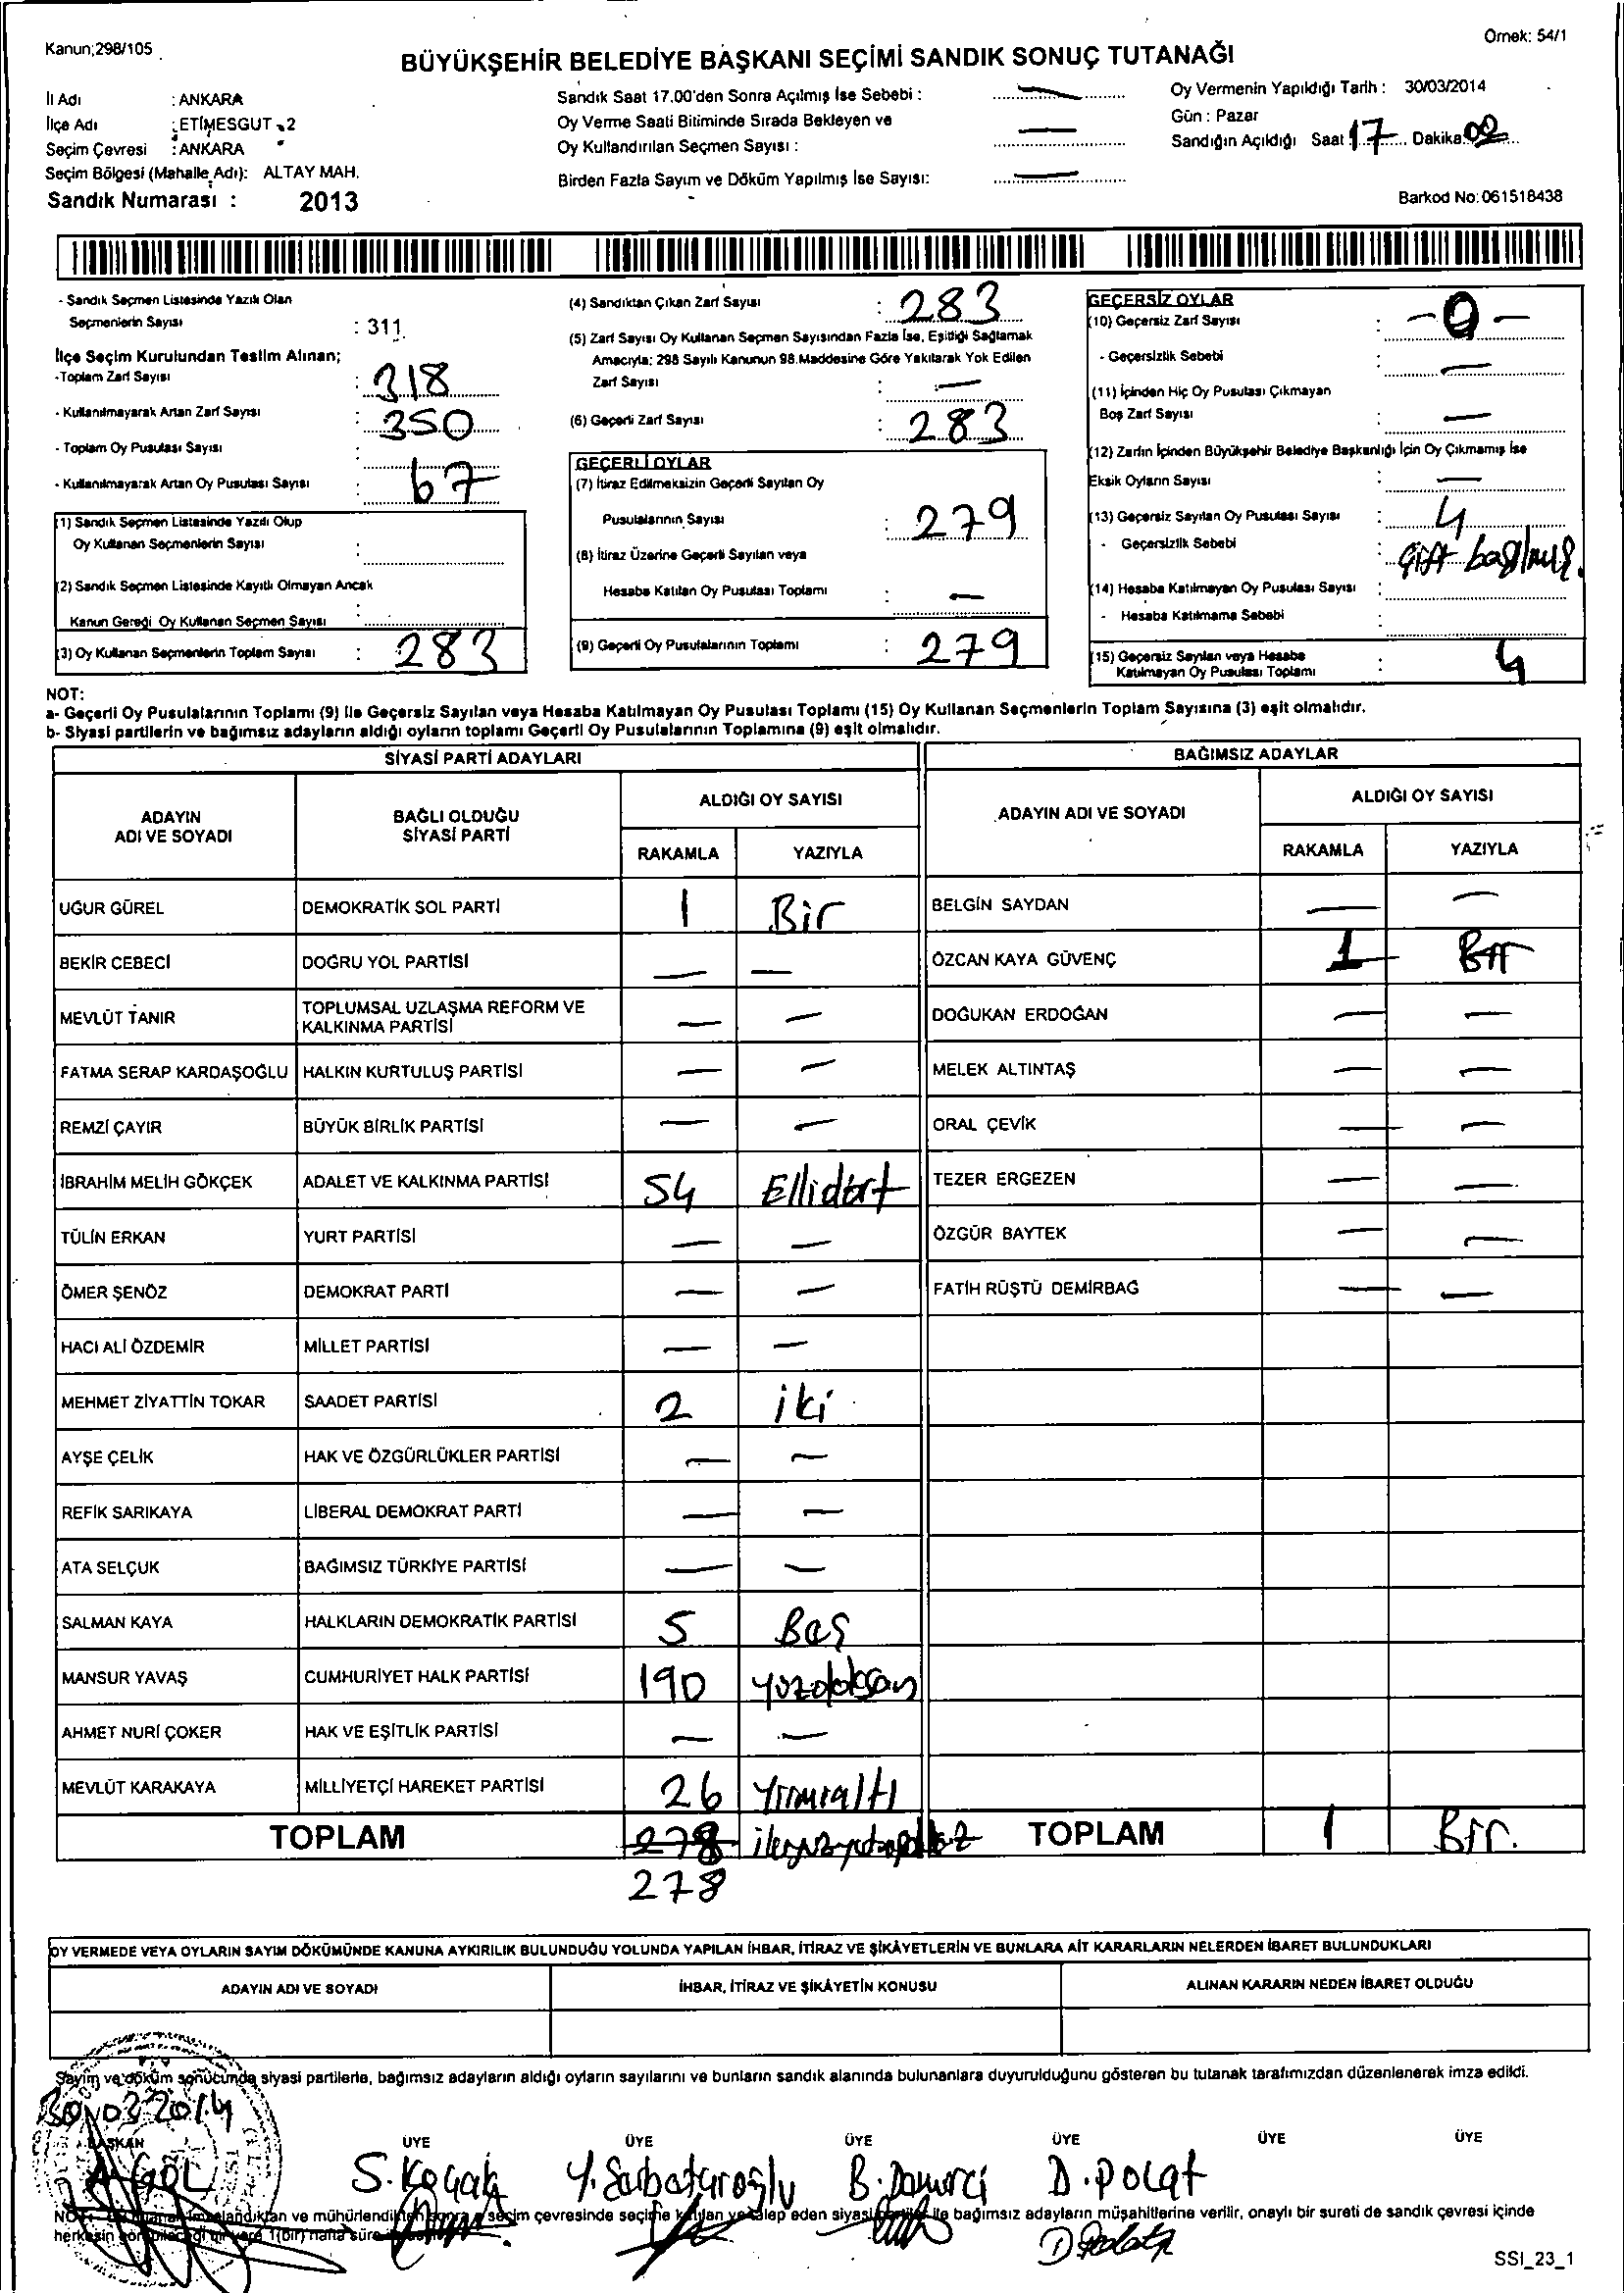 Kanun;298/105
Örnek: 54/1
BÜYÜKŞEHİR BELEDİYE BAŞKANI SEÇİMİ SANDIK SONUÇ TUTANAĞI
İli Adı : ANKARA
İlçe Adı : ETİMESGUT - 2
Seçim Çevresi : ANKARA
Seçim Bölgesi (Mahalle Adı): ALTAY MAH.
Sandık Numarası : 2013
Sandık Saat 17.00'den Sonra Açılmış İse Sebebi : —
Oy Verme Saati Bitiminde Sırada Bekleyen ve
Oy Kullandırılan Seçmen Sayısı : —
Birden Fazla Sayım ve Döküm Yapılmış İse Sayısı: —
Oy Vermenin Yapıldığı Tarih : 30/03/2014
Gün : Pazar
Sandığın Açıldığı Saat 17 Dakika 00
Barkod No:061518438
- Sandık Seçmen Listesinde Yazılı Olan
Seçmenlerin Sayısı : 311
İlçe Seçim Kurulundan Teslim Alınan;
-Toplam Zarf Sayısı : 318
- Kullanılmayarak Artan Zarf Sayısı : 350
- Toplam Oy Pusulası Sayısı :
- Kullanılmayarak Artan Oy Pusulası Sayısı : 67
(1) Sandık Seçmen Listesinde Yazılı Olup
Oy Kullanan Seçmenlerin Sayısı :
(2) Sandık Seçmen Listesinde Kayıtlı Olmayan Ancak
Kanun Gereği Oy Kullanan Seçmen Sayısı :
(3) Oy Kullanan Seçmenlerin Toplam Sayısı : 283
(4) Sandıktan Çıkan Zarf Sayısı : 283
(5) Zarf Sayısı Oy Kullanan Seçmen Sayısından Fazla İse, Eşitliği Sağlamak
Amacıyla; 298 Sayılı Kanunun 98.Maddesine Göre Yakılarak Yok Edilen
Zarf Sayısı : —
(6) Geçerli Zarf Sayısı : 283
GEÇERLİ OYLAR
(7) İtiraz Edilmeksizin Geçerli Sayılan Oy
Pusulalarının Sayısı : 279
(8) İtiraz Üzerine Geçerli Sayılan veya
Hesaba Katılan Oy Pusulası Toplamı : —
(9) Geçerli Oy Pusulalarının Toplamı : 279
GEÇERSİZ OYLAR
(10) Geçersiz Zarf Sayısı : - 0 -
- Geçersizlik Sebebi : —
(11) İçinden Hiç Oy Pusulası Çıkmayan
Boş Zarf Sayısı : —
(12) Zarfın İçinden Büyükşehir Belediye Başkanlığı İçin Oy Çıkmamış İse
Eksik Oyların Sayısı : —
(13) Geçersiz Sayılan Oy Pusulası Sayısı : 4
- Geçersizlik Sebebi : Çift basılmış.
(14) Hesaba Katılmayan Oy Pusulası Sayısı :
- Hesaba Katılmama Sebebi :
(15) Geçersiz Sayılan veya Hesaba
Katılmayan Oy Pusulası Toplamı : 4
NOT:
a- Geçerli Oy Pusulalarının Toplamı (9) ile Geçersiz Sayılan veya Hesaba Katılmayan Oy Pusulası Toplamı (15) Oy Kullanan Seçmenlerin Toplam Sayısına (3) eşit olmalıdır.
b- Siyasi partilerin ve bağımsız adayların aldığı oyların toplamı Geçerli Oy Pusulalarının Toplamına (9) eşit olmalıdır.
SİYASİ PARTİ ADAYLARI
ADAYIN ADI VE SOYADI
BAĞLI OLDUĞU SİYASİ PARTİ
ALDIĞI OY SAYISI
RAKAMLA YAZIYLA
UĞUR GÜREL DEMOKRATİK SOL PARTİ 1 Bir
BEKİR CEBECİ DOĞRU YOL PARTİSİ — —
MEVLÜT TANIR TOPLUMSAL UZLAŞMA REFORM VE KALKINMA PARTİSİ — —
FATMA SERAP KARDAŞOĞLU HALKIN KURTULUŞ PARTİSİ — —
REMZİ ÇAYIR BÜYÜK BİRLİK PARTİSİ — —
İBRAHİM MELİH GÖKÇEK ADALET VE KALKINMA PARTİSİ 54 Ellidört
TÜLİN ERKAN YURT PARTİSİ — —
ÖMER ŞENÖZ DEMOKRAT PARTİ — —
HACI ALİ ÖZDEMİR MİLLET PARTİSİ — —
MEHMET ZİYATTİN TOKAR SAADET PARTİSİ 2 iki
AYŞE ÇELİK HAK VE ÖZGÜRLÜKLER PARTİSİ — —
REFİK SARIKAYA LİBERAL DEMOKRAT PARTİ — —
ATA SELÇUK BAĞIMSIZ TÜRKİYE PARTİSİ — —
SALMAN KAYA HALKLARIN DEMOKRATİK PARTİSİ 5 Beş
MANSUR YAVAŞ CUMHURİYET HALK PARTİSİ 190 yüzdoksan
AHMET NURİ ÇOKER HAK VE EŞİTLİK PARTİSİ — —
MEVLÜT KARAKAYA MİLLİYETÇİ HAREKET PARTİSİ 26 Yirmialtı
TOPLAM 278
278
BAĞIMSIZ ADAYLAR
ADAYIN ADI VE SOYADI
ALDIĞI OY SAYISI
RAKAMLA YAZIYLA
BELGİN SAYDAN — —
ÖZCAN KAYA GÜVENÇ 1 Bir
DOĞUKAN ERDOĞAN — —
MELEK ALTINTAŞ — —
ORAL ÇEVİK — —
TEZER ERGEZEN — —
ÖZGÜR BAYTEK — —
FATİH RÜŞTÜ DEMİRBAĞ — —
TOPLAM 1 Bir.
OY VERMEDE VEYA OYLARIN SAYIM DÖKÜMÜNDE KANUNA AYKIRILIK BULUNDUĞU YOLUNDA YAPILAN İHBAR, İTİRAZ VE ŞİKÂYETLERİN VE BUNLARA AİT KARARLARIN NELERDEN İBARET BULUNDUKLARI
ADAYIN ADI VE SOYADI İHBAR, İTİRAZ VE ŞİKÂYETİN KONUSU ALINAN KARARIN NEDEN İBARET OLDUĞU
Sayım ve döküm sonucunda siyasi partilerle, bağımsız adayların aldığı oyların sayılarını ve bunların sandık alanında bulunanlara duyurulduğunu gösteren bu tutanak tarafımızdan düzenlenerek imza edildi.
30.03.2014
BAŞKAN ÜYE ÜYE ÜYE ÜYE ÜYE ÜYE
A. GÖL S. Koçak Y. B. Demirci D. Polat
ve mühürlendikten sonra seçim çevresinde seçime katılan ve talep eden siyasi partiler ile bağımsız adayların müşahitlerine verilir, onaylı bir sureti de sandık çevresi içinde
herkesin görebileceği bir yere 1(bir) hafta süre
SSI_23_1